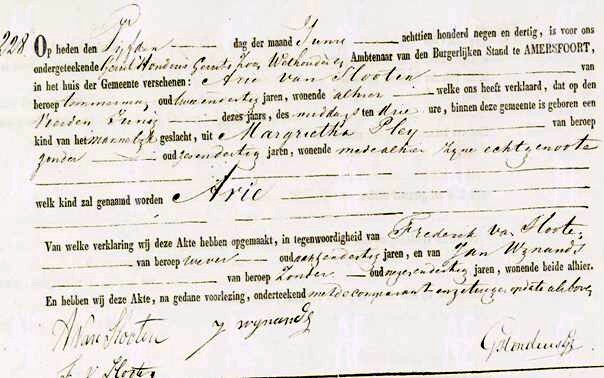 228
Op heden den Vyfden dag der maand Juny achttien honderd negen en dertig, is voor ons
ondergeteekende Wethouder Ambtenaar van den Burgerlijken Stand te AMERSFOORT,
in het huis der Gemeente verschenen: Arie van Slooten van
beroep timmerman, oud twee en dertig jaren, wonende alhier welke ons heeft verklaard, dat op den
Vierden Juny dezes jaars, des middags ten drie ure, binnen deze gemeente is geboren een
kind van het mannelijk geslacht, uit Margrietha Pley van beroep
zonder oud zevendertig jaren, wonende mede alhier zyne echtgenoote
welk kind zal genaamd worden Arie
Van welke verklaring wij deze Akte hebben opgemaakt, in tegenwoordigheid van Frederik van Slooten
van beroep wever oud jaren, en van Jan Wynands
van beroep Zonder oud jaren, wonende beide alhier.
En hebben wij deze Akte, na gedane voorlezing, onderteekend met de comparant en getuigen
A van Slooten
J wynands
F. v. Slooten